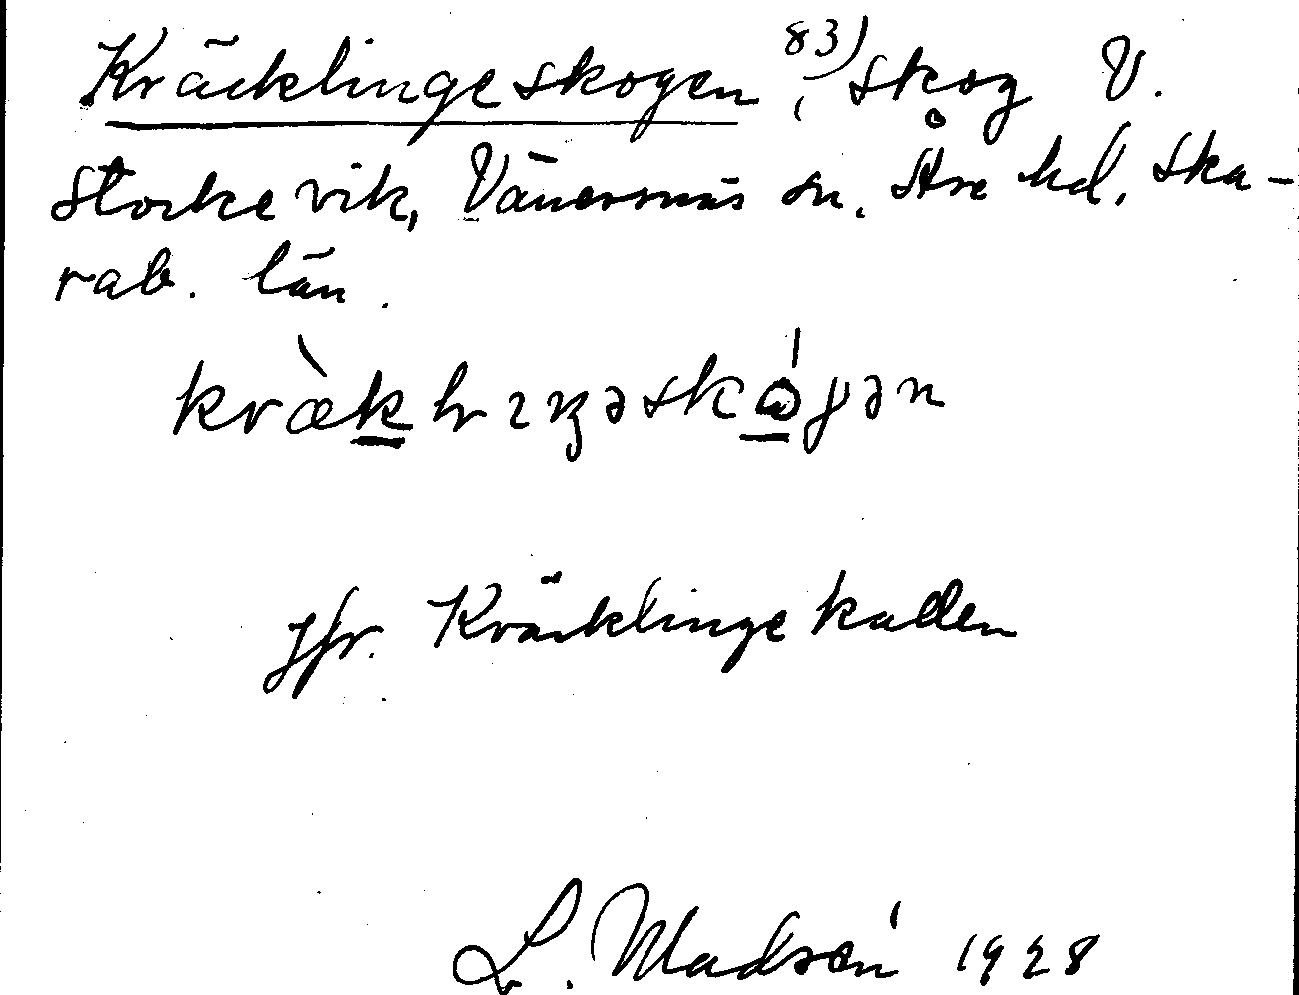 Kräcklingeskogen 83), skog V.
Storke vik, Vänersnäs sn. Åse hd, Ska-
rab. län.
Jfr. Kräcklingekallen
L. Madsén 1928